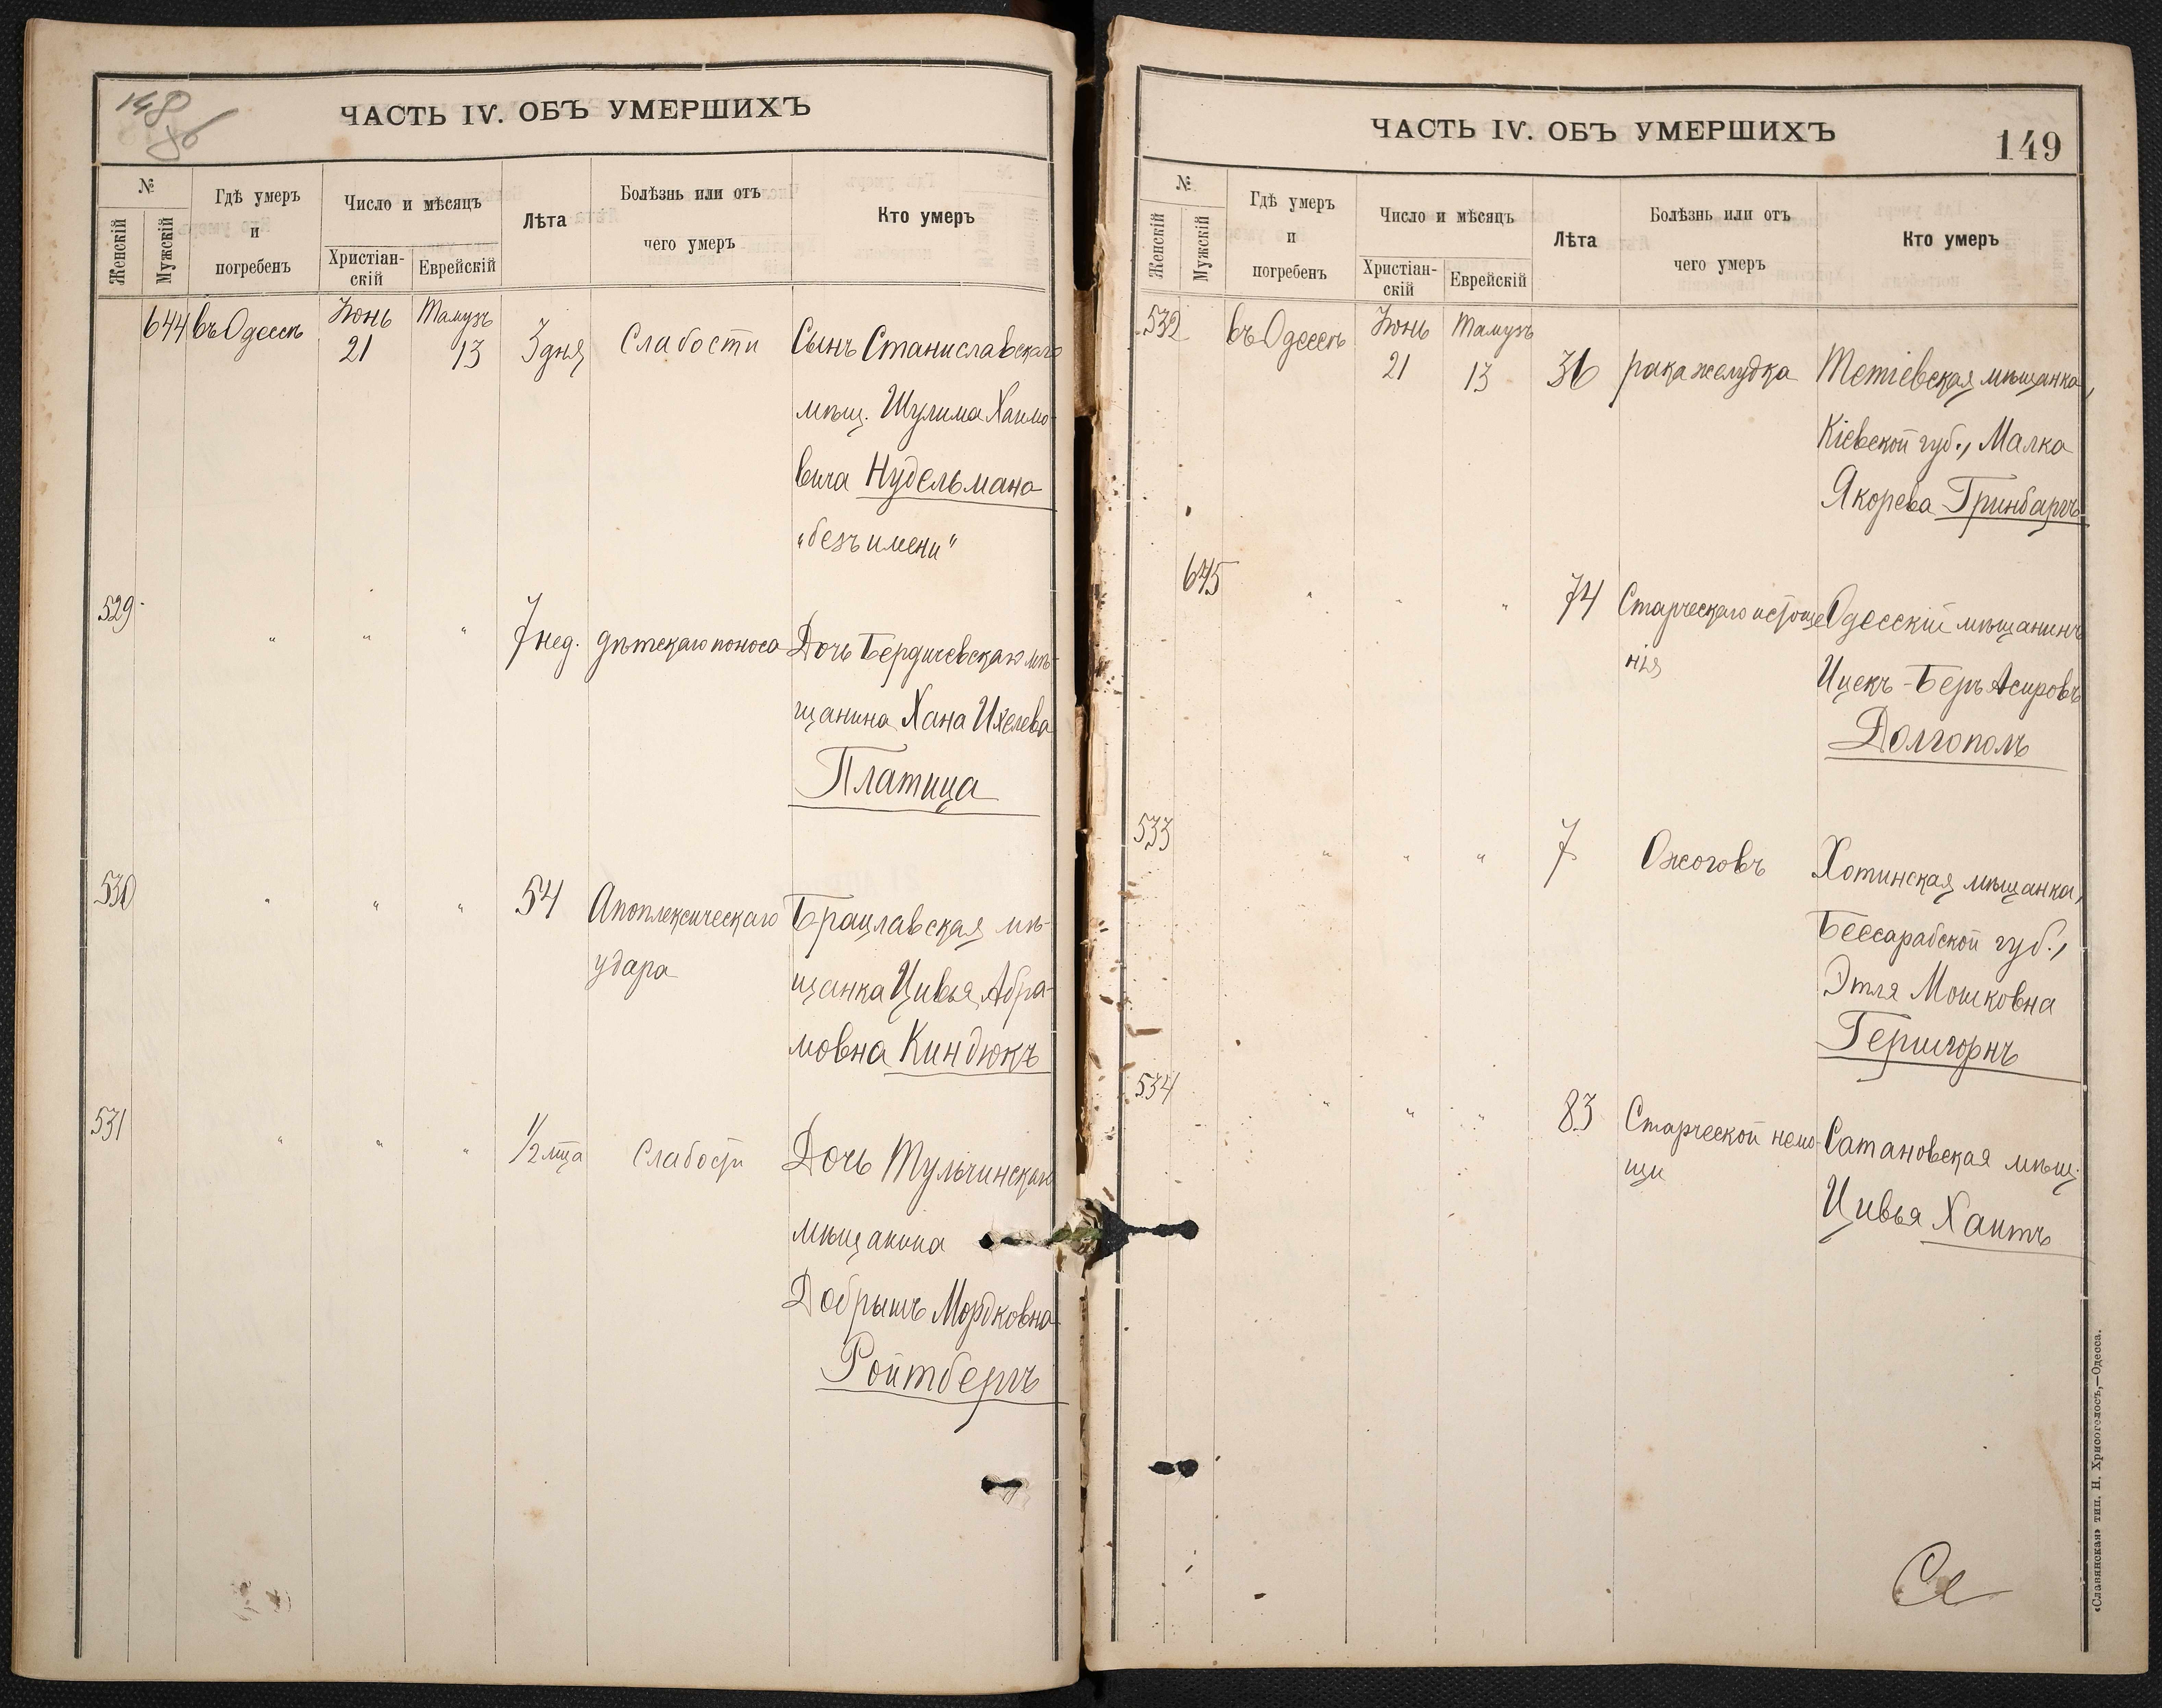 148
об
ЧАСТЬ IV. ОБЪ УМЕРШИХЪ
№
Женскій
Мужскій
Гдѣ умеръ
и
погребенъ
Число и мѣсяцъ
Христіан-
скій
Еврейскій
Лѣта
Болѣзнь или отъ
чего умеръ
Кто умеръ
644 въ Одессѣ Іюнь 21 Тамузъ 13 3 дня Слабости Сынъ Станиславскаго
мѣщ. Шулима Хаимо-
вича Нудельмана
„безъ имени"
529 " " " 7 нед. дѣтскаго поноса Дочь Бердичевскаго мѣ-
щанина Хана Ихелева
Платица
530 " " " 54 Апоплексическаго Брацлавская мѣ-
удара щанка Цивья Абра-
мовна Киндюкъ
531 " " " 1/2 мца Слабости Дочь Тульчинскаго
мѣщанина
Добрышъ Мордковна
Ройтбергъ
ЧАСТЬ IV. ОБЪ УМЕРШИХЪ
149
№
Женскій
Мужскій
Гдѣ умеръ
и
погребенъ
Число и мѣсяцъ
Христіан-
скій
Еврейскій
Лѣта
Болѣзнь или отъ
чего умеръ
Кто умеръ
532 въ Одессѣ Іюнь 21 Тамузъ 13 36 рака желудка Тетіевская мѣщанка,
Кіевской губ., Малка
Якорева Гринбаргъ
645 " " " 74 Старческаго истоще- Одесскій мѣщанинъ
нія Ицекъ-Беръ Асировъ
Долгополъ
533 " " " 7 Ожоговъ Хотинская мѣщанка,
Бессарабской губ.,
Этля Мошковна
Гершгорнъ
534 " " " 83 Старческой немо- Сатановская мѣщ.
щи Цивья Хаитъ
«Славянская» тип. Н. Хрисогелосъ,—Одесса.